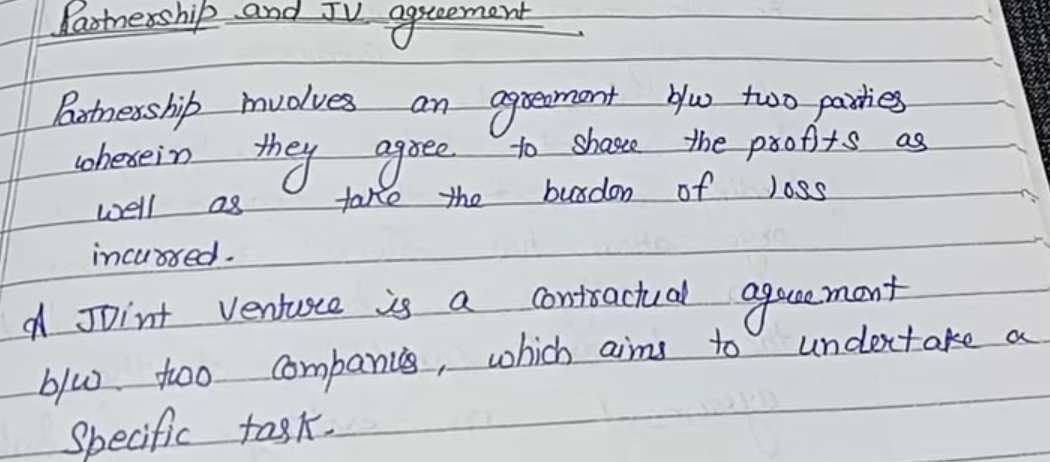 Partnership and JV agreement
Partnership involves an agreement b/w two parties
wherein they agree to share the profits as
well as take the burden of loss
incurred.
A Joint Venture is a contractual agreement
b/w two companies, which aims to undertake a
specific task.